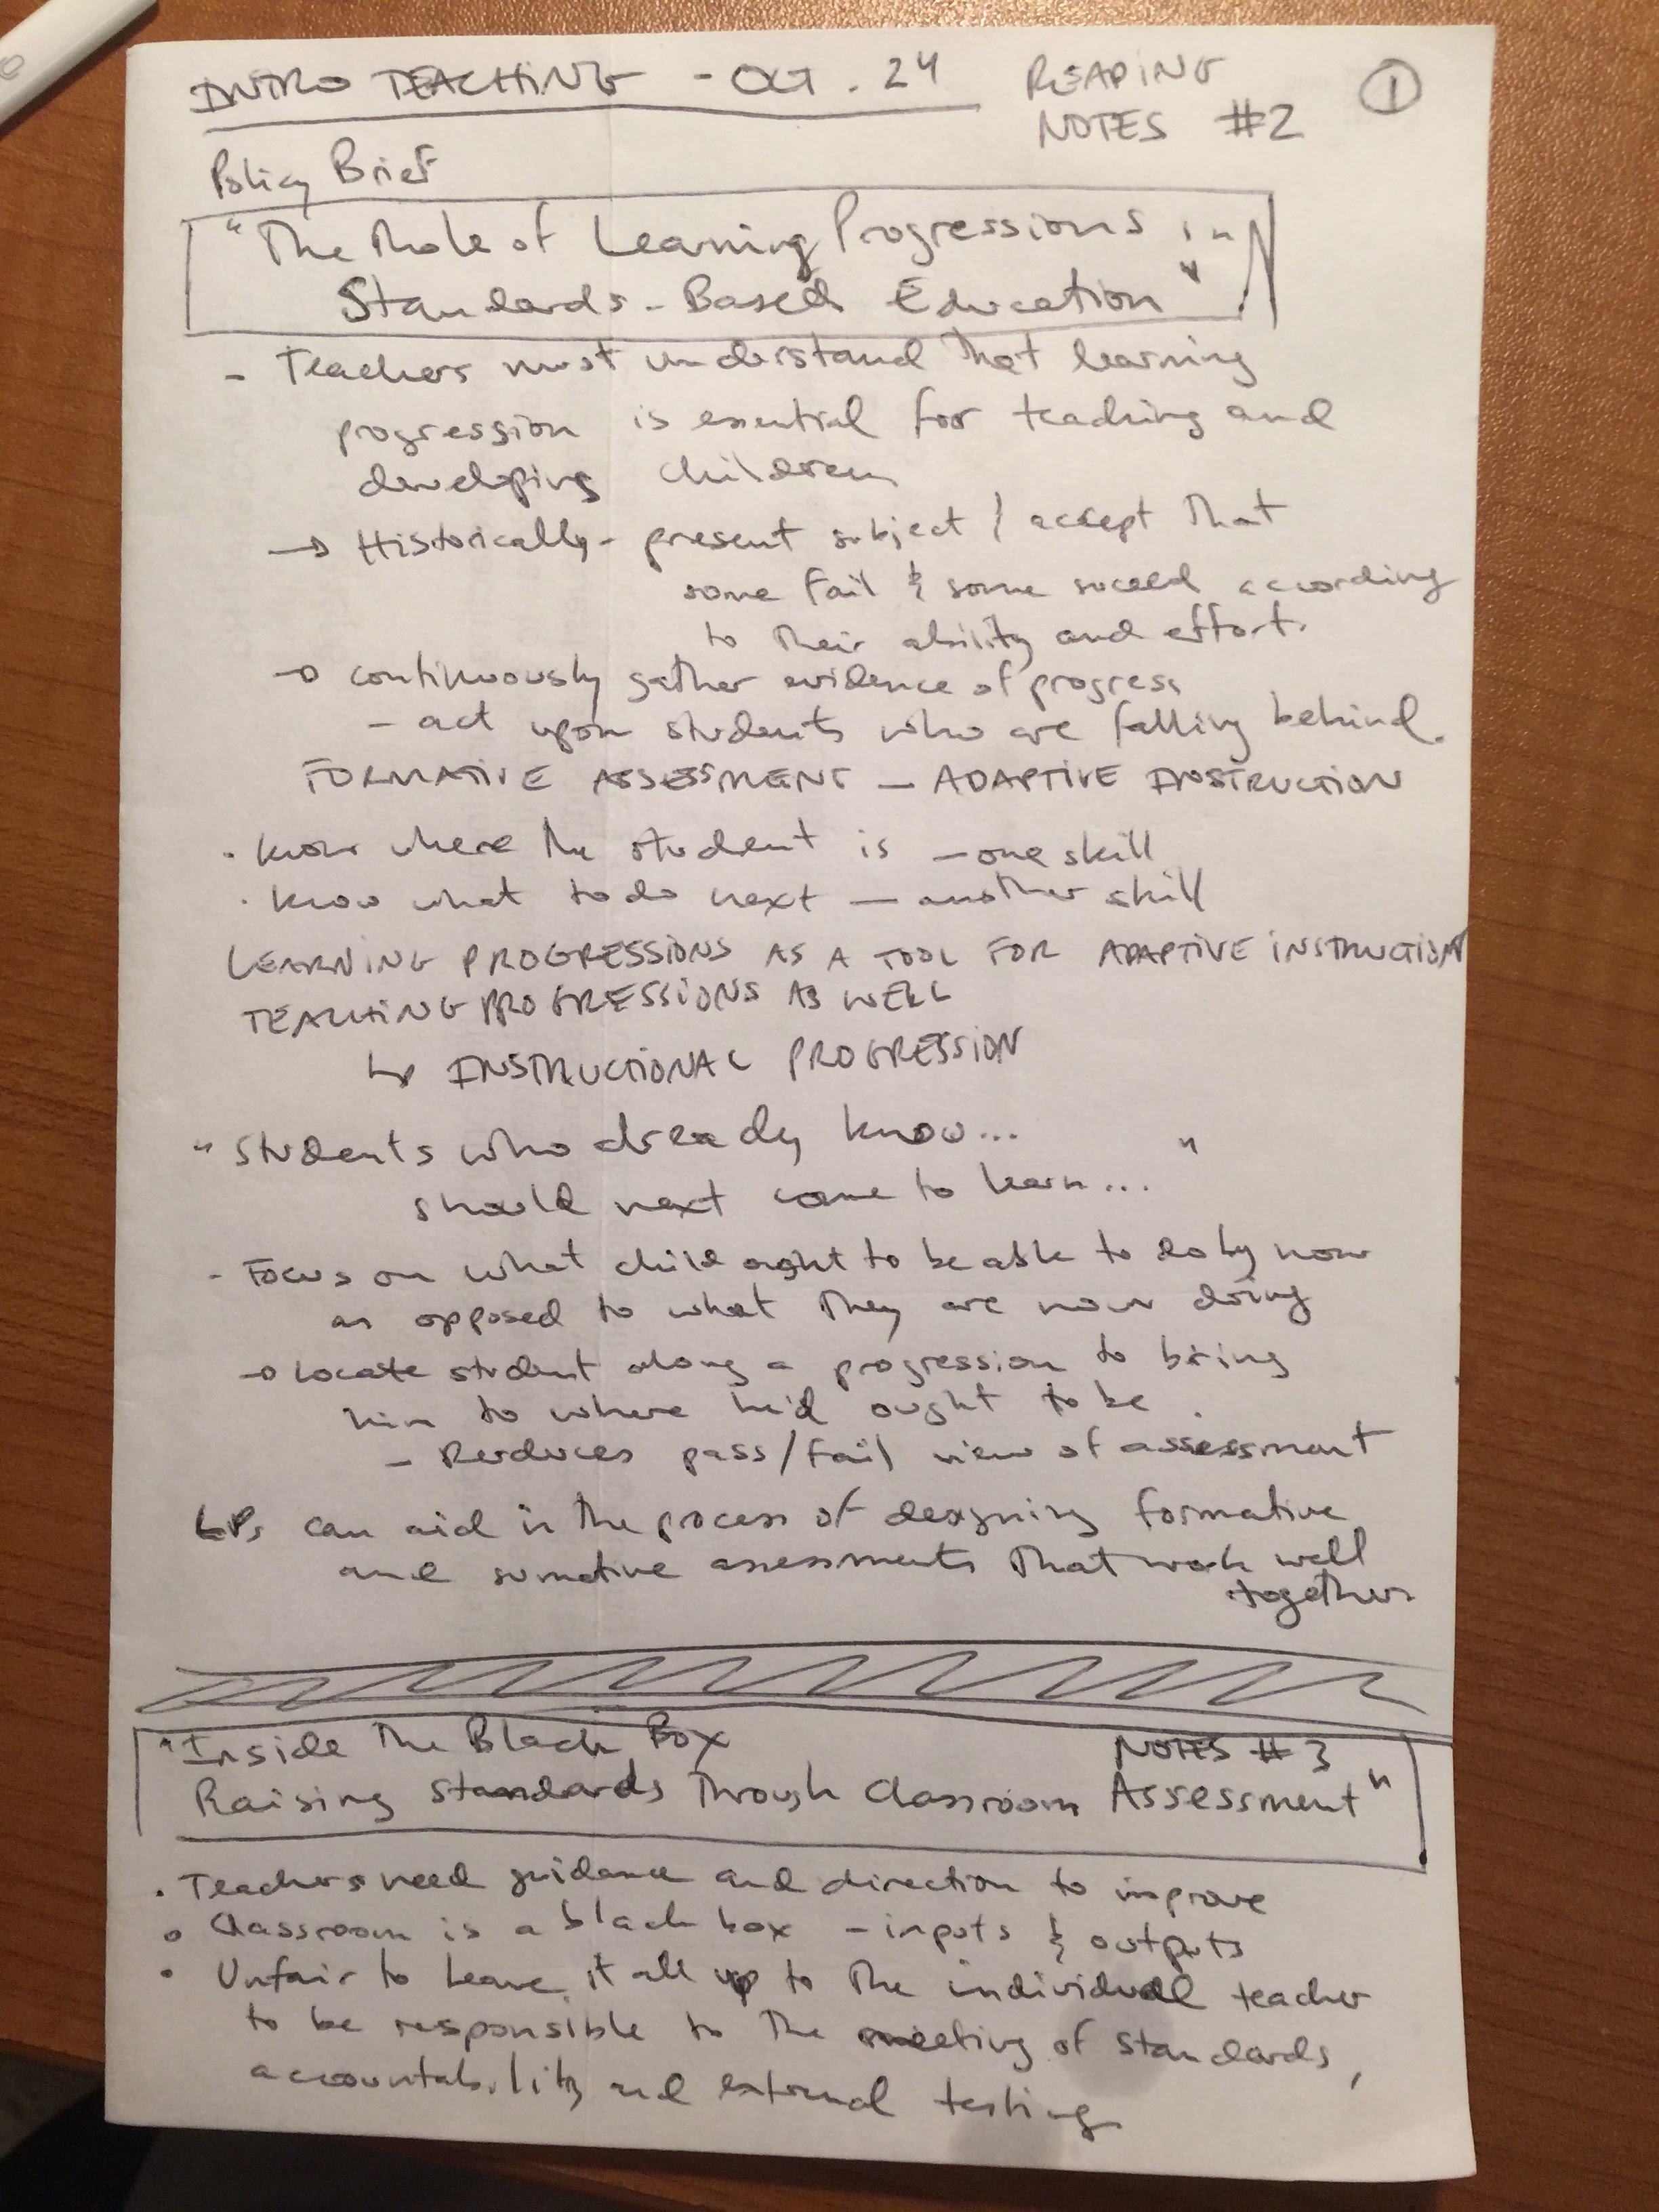 INTRO TEACHING - OCT. 24
READING
NOTES #2
1
Policy Brief
"The Role of Learning Progressions in
Standards-Based Education"
- Teachers must understand that learning
progression is essential for teaching and
developing children
→ Historically - present subject / accept that
some fail & some succeed according
to their ability and effort.
→ continuously gather evidence of progress
- act upon students who are falling behind.
FORMATIVE ASSESSMENT - ADAPTIVE INSTRUCTION
· know where the student is - one skill
· know what to do next - another skill
LEARNING PROGRESSIONS AS A TOOL FOR ADAPTIVE INSTRUCTION
TEACHING PROGRESSIONS AS WELL
↳ INSTRUCTIONAL PROGRESSION
"Students who already know...
should next come to learn..."
- Focus on what child ought to be able to do by now
as opposed to what they are now doing
→ Locate student along a progression to bring
him to where he'd ought to be.
- Reduces pass/fail view of assessment
LPs can aid in the process of designing formative
and sumative assessments that work well
together
"Inside The Black Box
NOTES #3
Raising Standards Through Classroom Assessment"
· Teachers need guidance and direction to improve
· Classroom is a black box - inputs & outputs
· Unfair to leave it all up to the individual teacher
to be responsible to the meeting of standards,
accountability and external testing